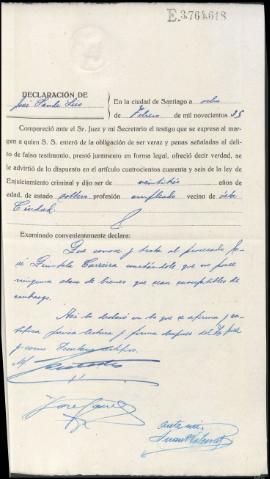 E.3764618
DECLARACIÓN DE
José
En la ciudad de Santiago a ocho
de Febrero de mil novecientos 35
Compareció ante el Sr. Juez y mi Secretario el testigo que se expresa al mar-
gen a quien S. S. enteró de la obligación de ser veraz y penas señaladas al delito
de falso testimonio, prestó juramento en forma legal, ofreció decir verdad, se
le advirtió de lo dispuesto en el artículo cuatrocientos cuarenta y seis de la ley de
Enjuiciamiento criminal y dijo ser de veintitrés años de
edad, de estado soltero profesión empleado vecino de esta
Ciudad
Examinado convenientemente declara:
Que conoce y trata al procesado Jo-
sé Carreira constándole que no posee
ninguna clase de bienes que sean susceptibles de
embargo.
Así lo declaró en lo que se afirma y ra-
tifica previa lectura y firma después del Sr. Juez
y como
José
Ante mí,
Juan